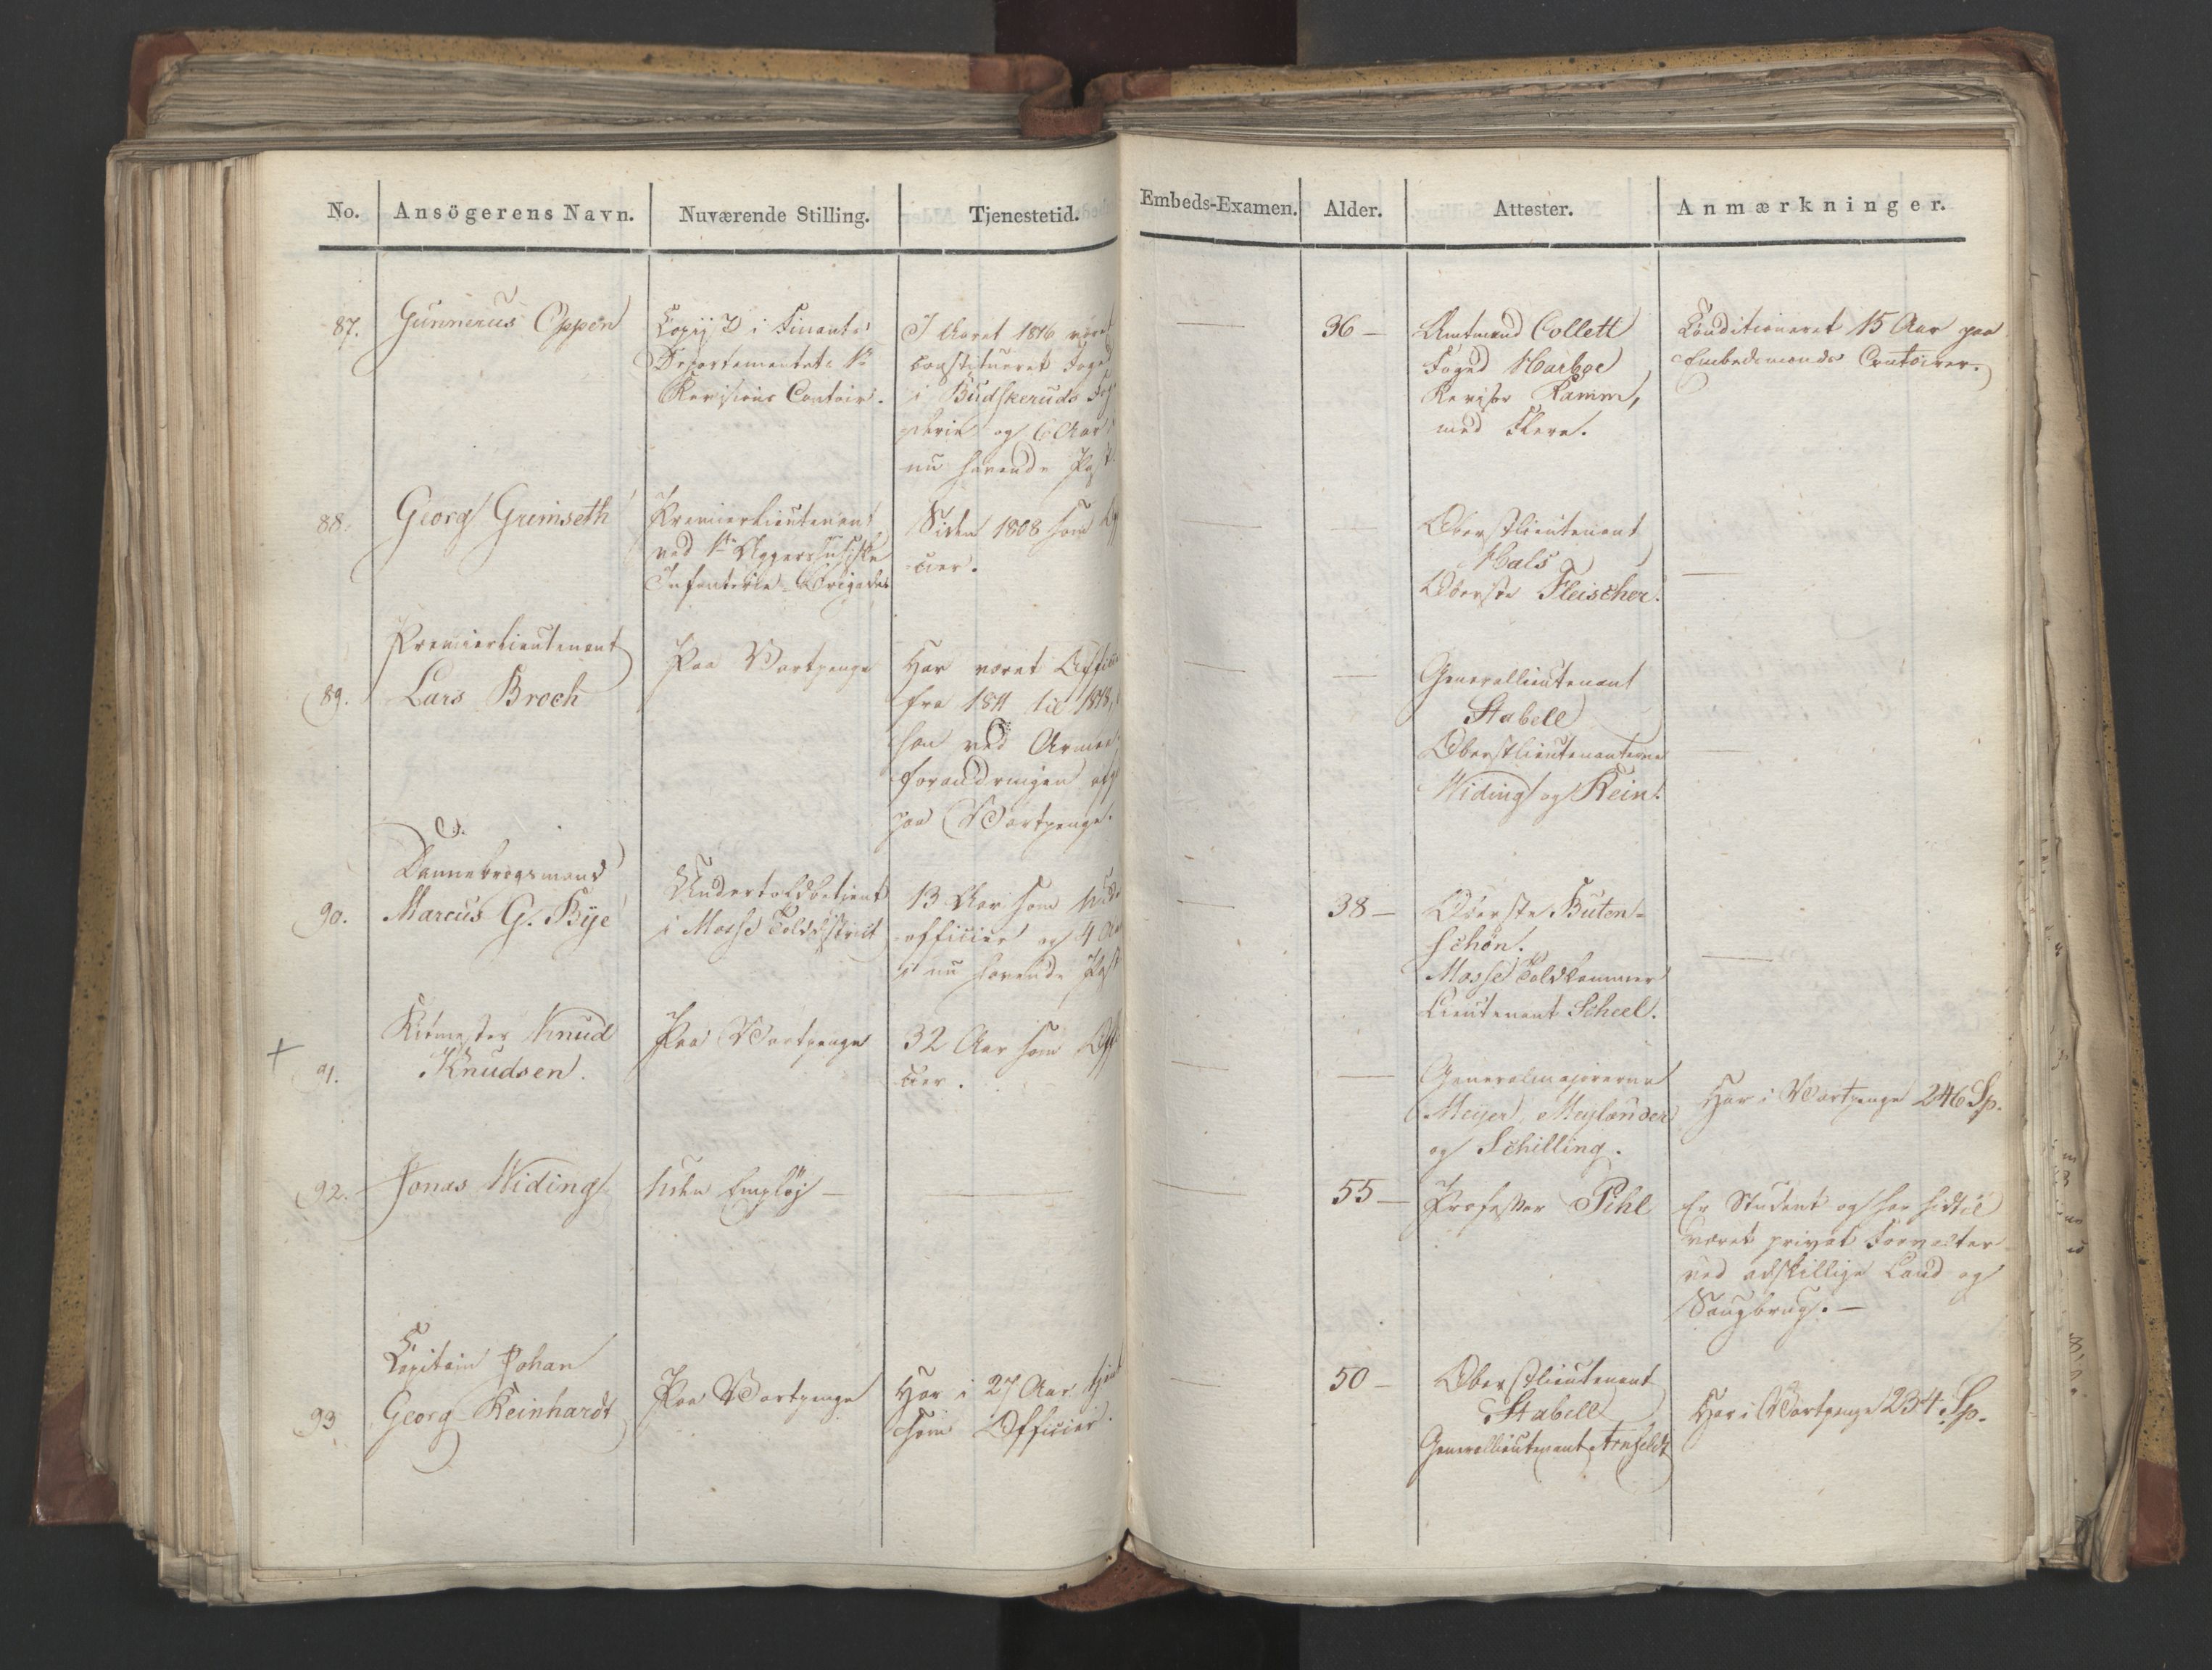 No. Ansögerens Navn. Nuværende Stilling. Tjenestetid. Embeds-Examen. Alder. Attester. Anmærkninger.
87.
Gunnerus Oppen
Copiist i Finants
Departementets 1ste
Revisions Contoir.
I Aaret 1816 været
constitueret Foged
i Budskeruds Fog
derie og 6 Aar i
nu havende Post.
—
36 —
Amtmand Collett
Foged Harboe
Revisor Ramm,
med Flere.
Conditioneret 15 Aar paa
Embedsmænds Contoirer.
88.
Georg Grimseth
Premierlieutenant
ved 1ste Aggershusiske
Infanterie-Brigade
Siden 1808 som Offi
cier.
—
—
Oberstlieutenant
Hals
Oberste Fleischer.
—
89.
Premierlieutenant
Lars Broch
Paa Vartpenge
Har været Officier
fra 1811 til 1818,
han ved Armee
forandringen
paa Vartpenge.
—
—
Generallieutenant
Stabell
Oberstlieutenanterne
Widing og Rein.
—
90.
Dannebrogsmand
Marcus G. Bye
Undertoldbetjent
i Mosse Tolddistrict
13 Aar som Under
officier og 4 Aar
i nu havende Post
—
38 —
Oberste Buten-
schön.
Mosse Toldkammer
Lieutenant Scheel.
—
+
91.
Ritmester Knud
Knudsen.
Paa Vartpenge
32 Aar som Offi
cier.
—
—
Generalmajorerne
Meyer, Meylænder
og Schilling.
Har i Vartpenge 246 Sp.
92.
Jonas Widing
Uden Emploj —
—
—
55 —
Professor Pihl
Er Student og har hidtil
været privat Forvalter
ved adskillige Land og
Saugbrug. —
93
Capitain Johan
Georg Reinhardt
Paa Vartpenge
Har i 27 Aar tjent
som Officier.
—
50 —
Oberstlieutenant
Stabell
Generallieutenant Arnfeldt
Har i Vartpenge 234 Sp.